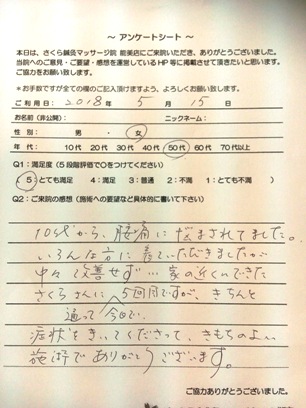 ～ アンケートシート ～
本日は、さくら鍼灸マッサージ院 能美店にご来院いただき、ありがとうございました。
当院へのご意見・ご要望・感想を運営しているHP等に掲載させて頂きたいと思います。
ご協力をお願い致します。
＊お手数ですが全ての欄のご記入頂けますよう、よろしくお願い致します。
ご利用日： 2018年 5月 15日
お名前（非公開）： ニックネーム：
性別： 男・女
年代： 10代 20代 30代 40代 50代 60代 70代以上
Q1：満足度（5段階評価で○をつけてください）
5：とても満足 4：満足 3：普通 2：不満 1：とても不満
Q2：ご来院の感想（施術への要望など具体的に書いて下さい）
10代から、腰痛に悩まされてました。
いろんな方に看ていただきましたが
中々改善せず… 家の近くにできた
さくらさんに 5回目ですが、きちんと
通って 今日で、
症状をきいてくださって、きもちのよい
施術でありがとうございます。
ご協力ありがとうございました。